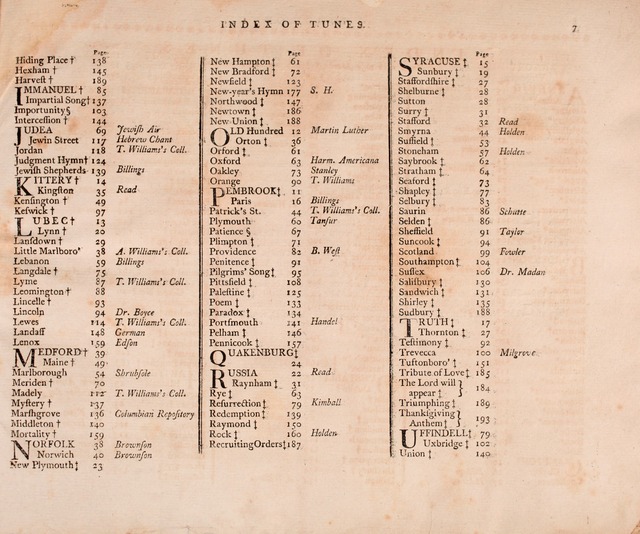 INDEX OF TUNES.
7
Page.
Hiding Place † 138
Hexham † 145
Harvest † 189
IMMANUEL † 85
Impartial Song‡ 137
Importunity § 103
Intercession † 144
JUDEA 69 Jewish Air
Jewin Street 117 Hebrew Chant
Jordan 118 T. Williams's Coll.
Judgment Hymn† 124
Jewish Shepherds· 139 Billings
KITTERY † 14
Kingston 35 Read
Kensington † 49
Keswick † 97
LUBEC † 13
Lynn † 20
Lansdown † 29
Little Marlboro' 38 A. Williams's Coll.
Lebanon 59 Billings
Langdale † 75
Lyme 87 T. Williams's Coll.
Leominster † 88
Lincelle † 93
Lincoln 94 Dr. Boyce
Lewes 114 T. Williams's Coll.
Landaff 148 German
Lenox 159 Edson
MEDFORD † 39
Maine † 49
Marlborough 54 Shrubsole
Meriden † 70
Madely 112 T. Williams's Coll.
Mystery † 137
Marshgrove 136 Columbian Repository
Middleton † 140
Mortality † 159
NORFOLK 38 Brownson
Norwich 40 Brownson
New Plymouth‡ 23
Page
New Hampton‡ 61
New Bradford ‡ 72
Newfield ‡ 123
New-year's Hymn 177 S. H.
Northwood ‡ 147
Newtown ‡ 186
New-Union ‡ 188
OLD Hundred 12 Martin Luther
Orton ‡ 36
Orford ‡ 61
Oxford 63 Harm. Americana
Oakley 73 Stanley
Orange 90 T. Williams
PEMBROK‡ 11
Paris 16 Billings
Patrick's St. 44 T. Williams's Coll.
Plymouth 60 Tansur
Patience § 67
Plimpton ‡ 71
Providence 82 B. West
Penitence ‡ 91
Pilgrims' Song‡ 95
Pittsfield ‡ 108
Palestine ‡ 125
Poem ‡ 133
Paradox ‡ 134
Portsmouth 241 Handel
Pelham ‡ 146
Pennicook ‡ 157
QUAKENBURG‡
24
RUSSIA 22 Read
Raynham ‡ 31
Rye ‡ 63
Resurrection ‡ 79 Kimball
Redemption ‡ 139
Raymond ‡ 150
Rock ‡ 160 Holden
Recruiting Orders‡ 187
Page
SYRACUSE ‡ 15
Sunbury ‡ 19
Staffordshire ‡ 27
Shelburne ‡ 28
Sutton 28
Surry ‡ 31
Stafford 32 Read
Smyrna 44 Holden
Suffield ‡ 53
Stoneham 57 Holden
Saybrook ‡ 62
Stratham ‡ 64
Seaford ‡ 73
Shapley ‡ 77
Selbury ‡ 83
Saurin 86 Schutte
Selden ‡ 86
Sheffield 91 Taylor
Suncook ‡ 94
Scotland 99 Fowler
Southampton‡ 104
Sussex 106 Dr. Madan
Salisbury ‡ 130
Sandwich ‡ 131
Shirley ‡ 135
Sudbury ‡ 188
TRUTH ‡ 17
Thornton ‡ 27
Testimony ‡ 92
Trevecca 100 Milgrove
Tuftonboro' ‡ 151
Tribute of Love‡ 185
The Lord will
appear ‡ } 184
Triumphing ‡ 189
Thanksgiving
Anthem‡ } 193
UFFINDELL‡ 79
Uxbridge ‡ 102
Union ‡ 140